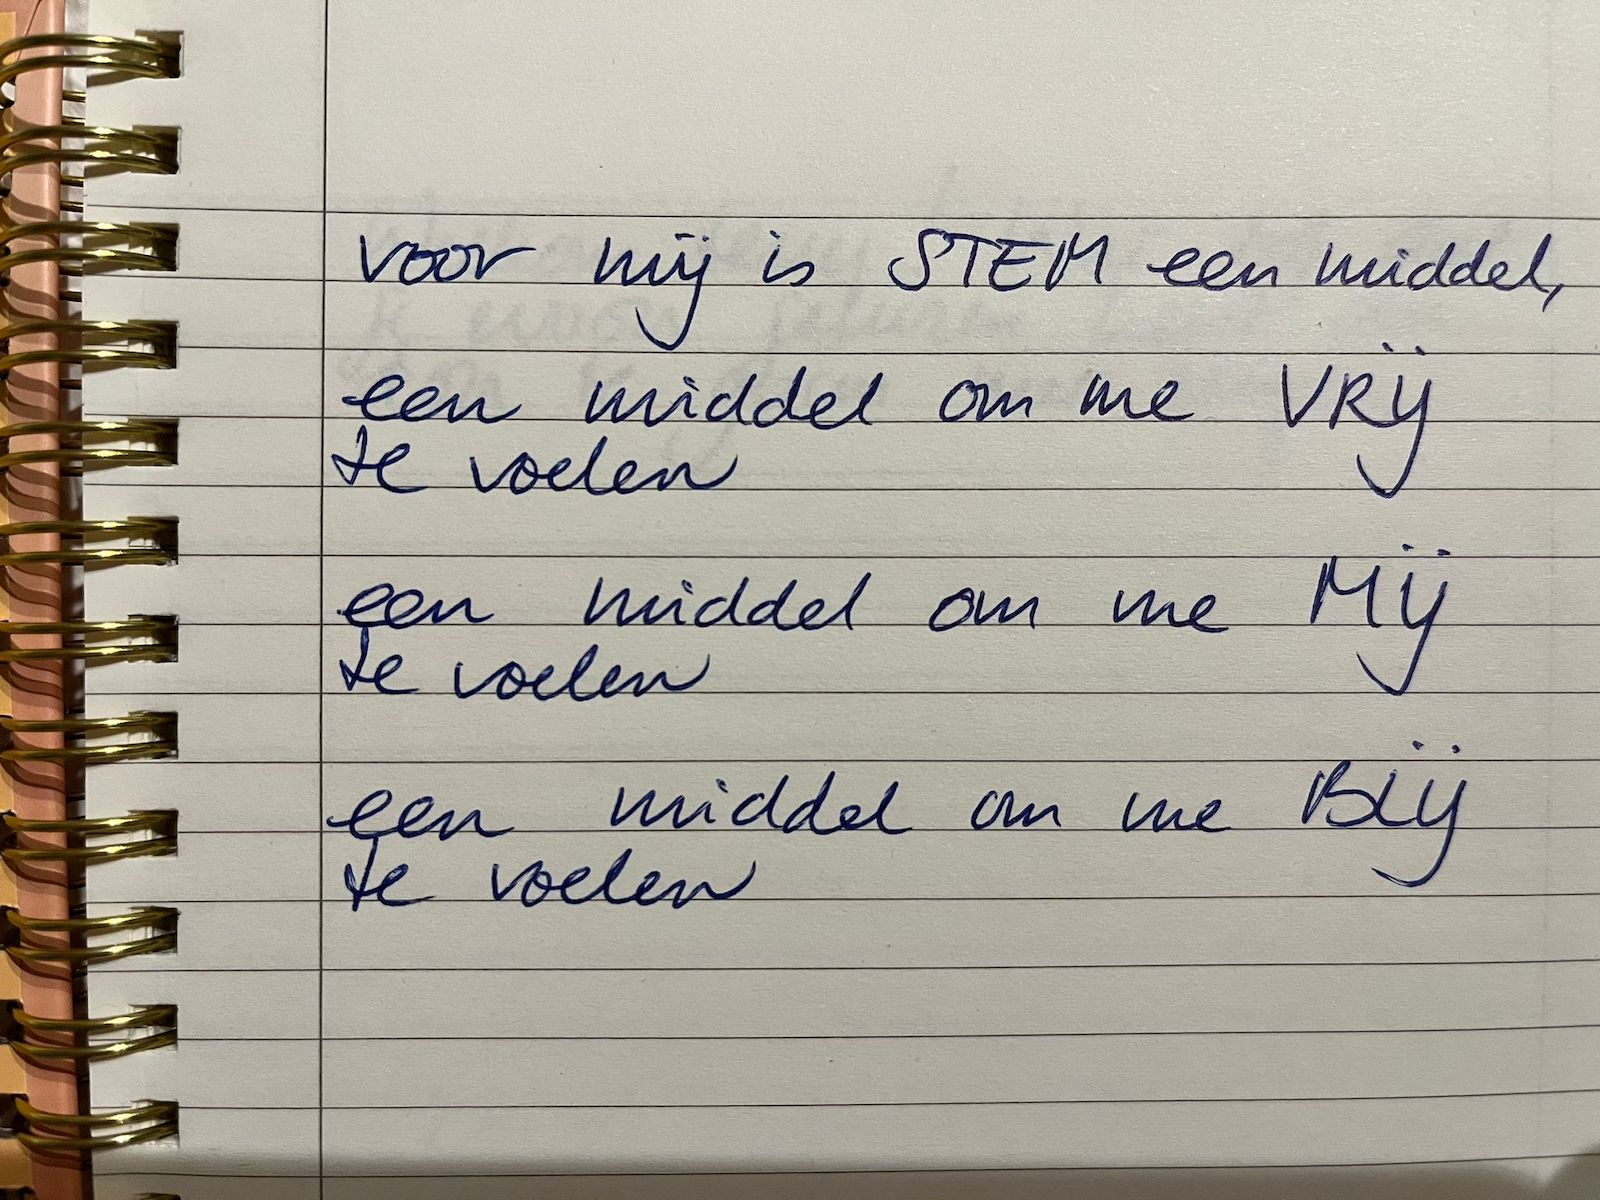 voor mij is STEM een middel,
een middel om me VRIJ
te voelen
een middel om me MIJ
te voelen
een middel om me BLIJ
te voelen